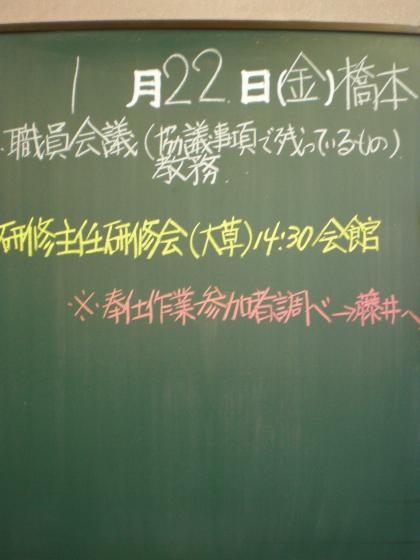 1月22日(金)橋本
・職員会議(協議事項で残っているもの)
教務
研修主任研修会(大草)14:30会館
※奉仕作業参加者調べ→藤井へ